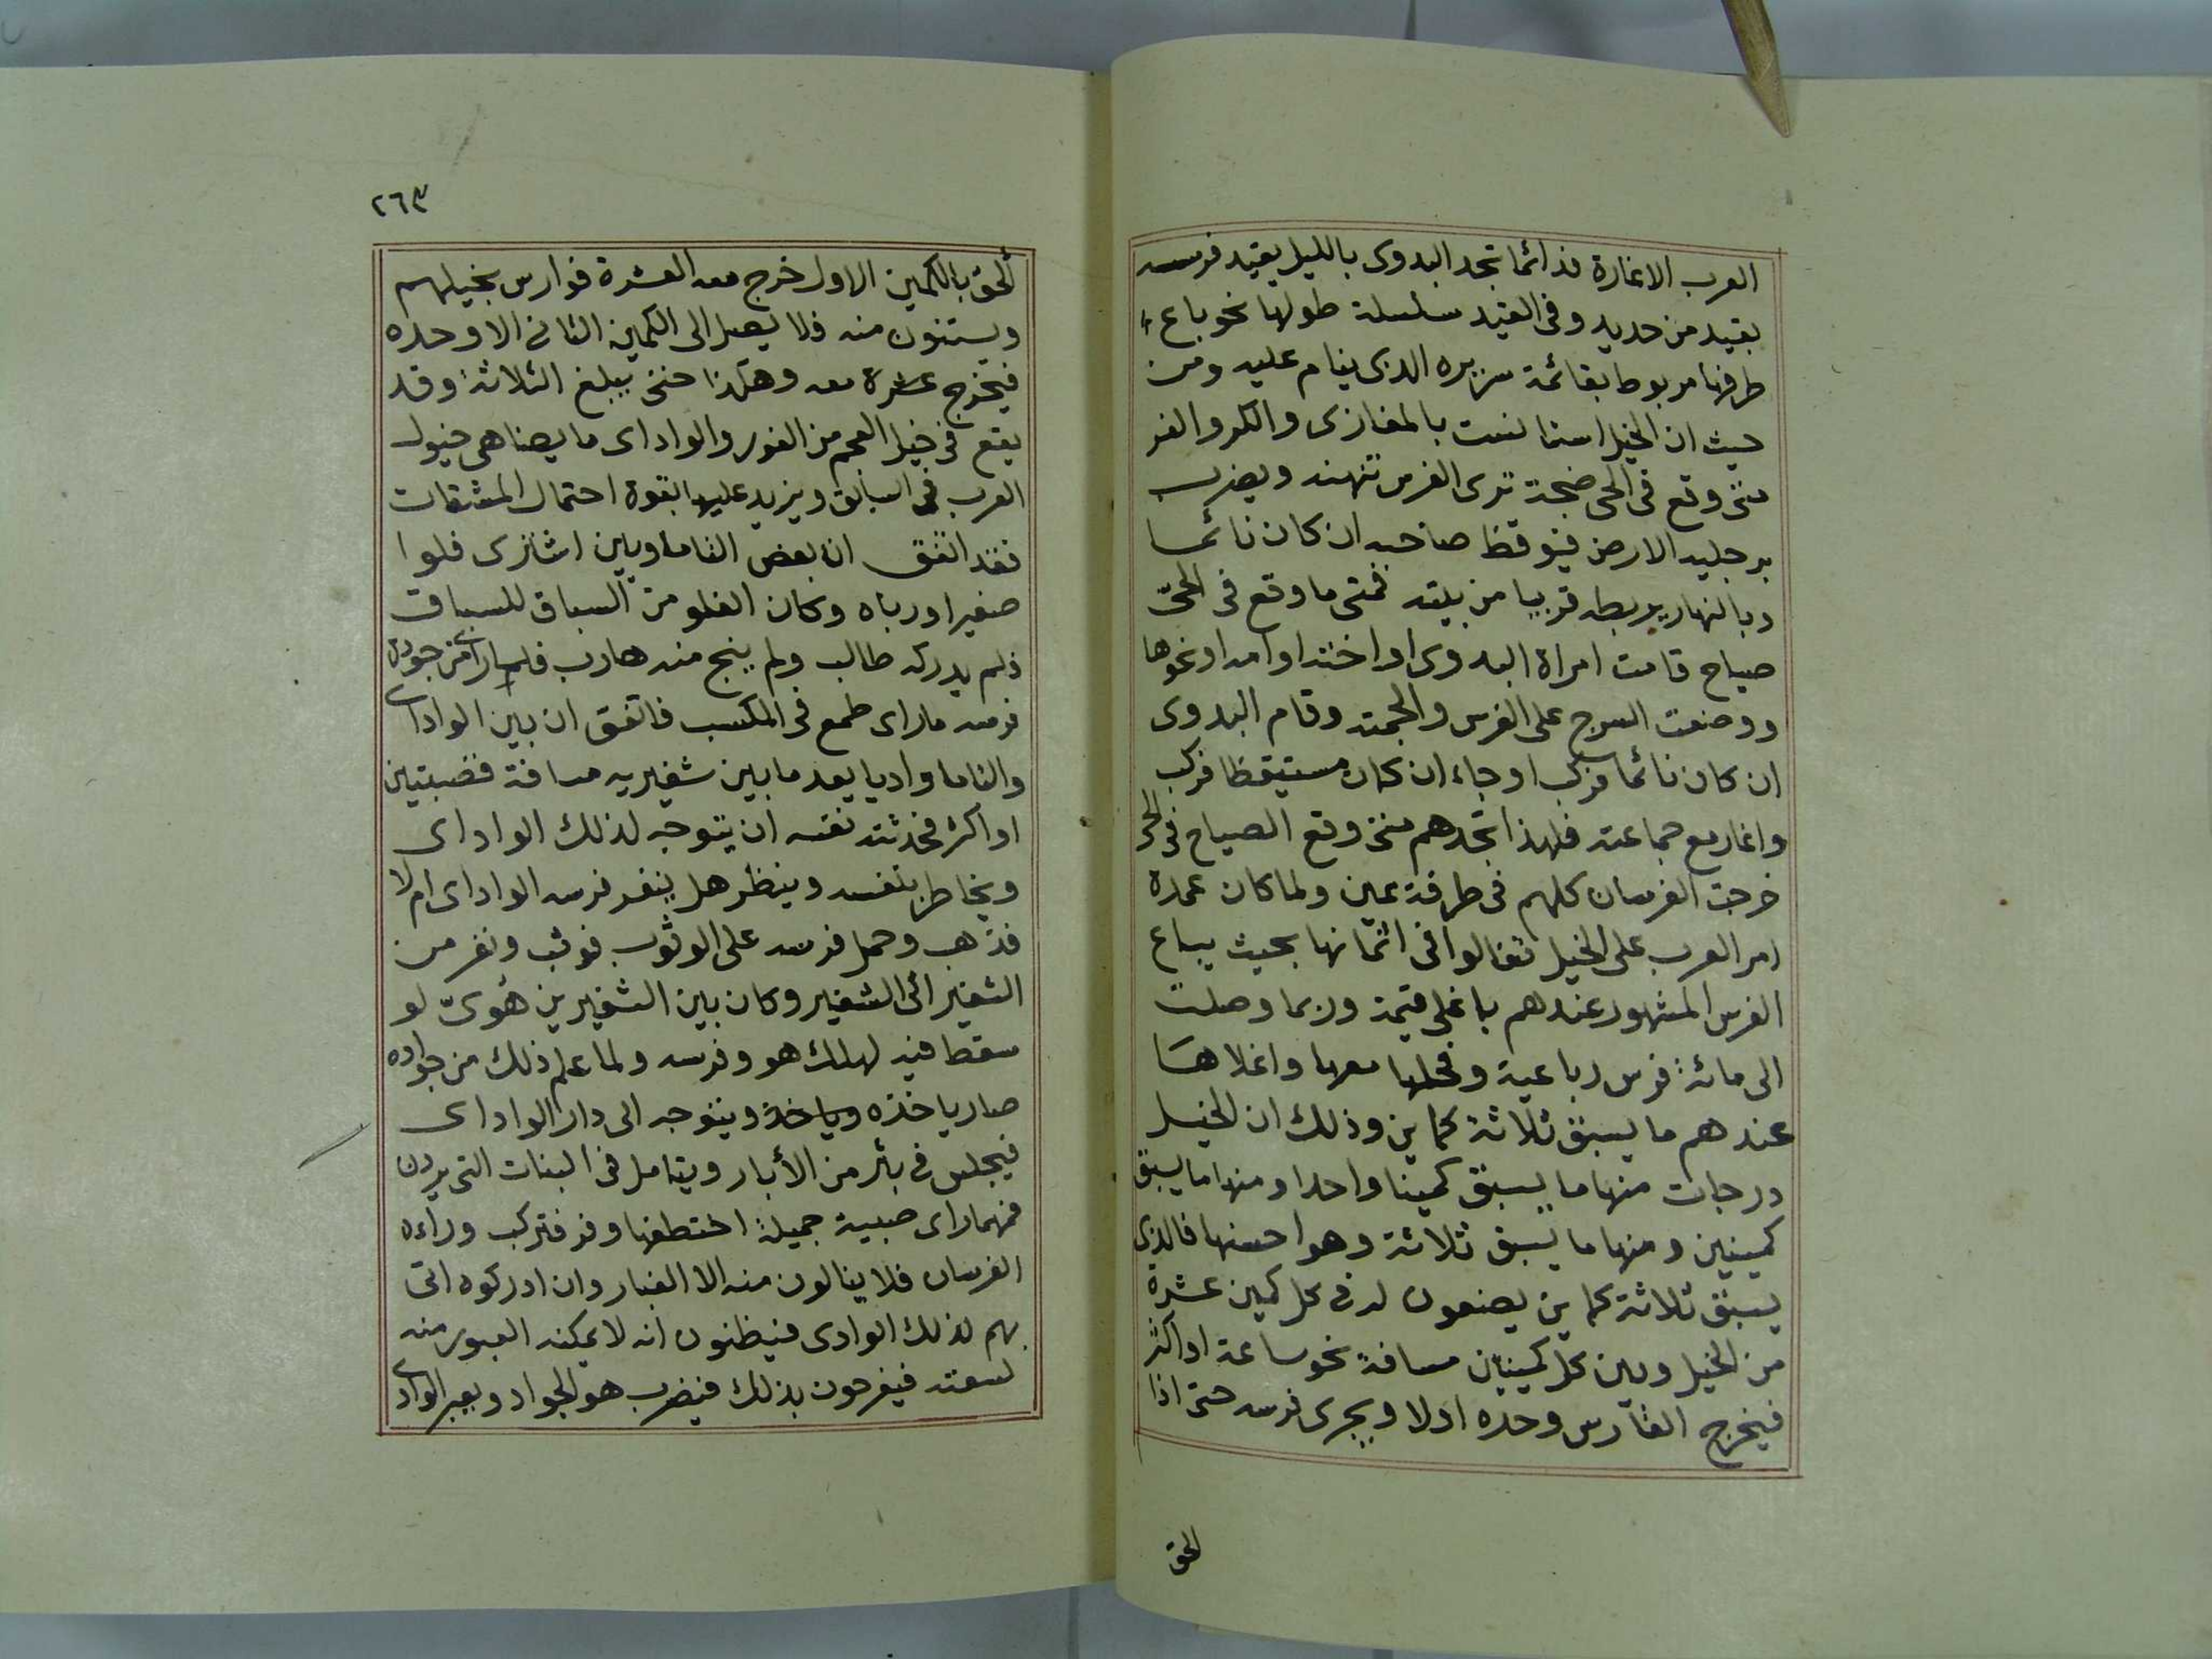 العرب الاغارة فدائما تجد البدوى بالليل يقيد فرسه
بقيد من حديد وفى القيد سلسلة طولها نحو باع
طرفها مربوط بقائمة سريره الذى ينام عليه ومن
حيث ان الخيل استانست بالمغازى والكر والفر
متى وقع فى الحى ضجة ترى الفرس تنهند ويضرب
برجليه الارض فيوقظ صاحبه ان كان نائما
وبالنهار يربطه قريبا من بيته فمتى ما وقع فى الحىّ
صياح قامت امراة البدوى او اخته او امه او نحوها
ووضعت السرج على الفرس والجمته وقام البدوى
ان كان نائما فركب او جاء ان كان مستيقظا فركب
واغار مع جماعته فلهذا تجدهم متى وقع الصياح فى الحى
خرجت الفرسان كلهم فى طرفة عين ولما كان عمدة
امر العرب على الخيل تغالوا فى اثمانها بحيث يباع
الفرس المشهور عندهم باغلى قيمة وربما وصلت
الى مائة فرس رباعية وفحلها معها واغلاها
عندهم ما يسبق ثلاثة كماين وذلك ان الخيل
درجات منها ما يسبق كمينا واحدا ومنها ما يسبق
كمينين ومنها ما يسبق ثلاثة وهو احسنها فالذى
يسبق ثلاثة كماين يصنعون له فى كل كمين عشرة
من الخيل وبين كل كمينين مسافة نحو ساعة او اكثر
فيخرج الفارس وحده اولا ويجرى فرسه حتى اذا
الحق
٢٦٩
ألحق بالكمين الاول خرج معه العشرة فوارس بخيلهم
ويستنون منه فلا يصل الى الكمين الثانى الا وحده
فيخرج عشرة معه وهكذا حتى يبلغ الثلاثة وقد
يقع فى خيل العجم من الفور والواداى ما يضاهى خيول
العرب فى السباق ويزيد عليها بقوة احتمال المشقات
فقد اتفق ان بعض التاماويين اشترى فلوا
صغيرا ورباه وكان الفلو من السباق للسباق
فلم يدركه طالب ولم ينج منه هارب فلما راى من جودة
فرسه ما راى طمع فى المكسب فاتفق ان بين الواداى
والتاما واديا بعد ما بين شفيريه مسافة قصبتين
او اكثر فحدثته نفسه ان يتوجه لذلك الواداى
ويخاطر بنفسه وينظر هل ينفر فرسه الواداى ام لا
فذهب وحمل فرسه على الوثوب فوثب ونفر من
الشفير الى الشفير وكان بين الشفيرين هُوىّ لو
سقط فيه لهلك هو وفرسه ولما علم ذلك من جواده
صار ياخذه وياخذه ويتوجه الى دار الواداى
فيجلس فى بئر من الأبار ويتامل فى البنات التى يردن
فمهما راى صبية جميلة اختطفها وفر فتركب وراءه
الفرسان فلا ينالون منه الا الغبار وان ادركوه اتى
بهم لذلك الوادى فيظنون انه لا يمكنه العبور منه
لسعته فيفرحون بذلك فيضرب هو الجواد ويعبر الوادى